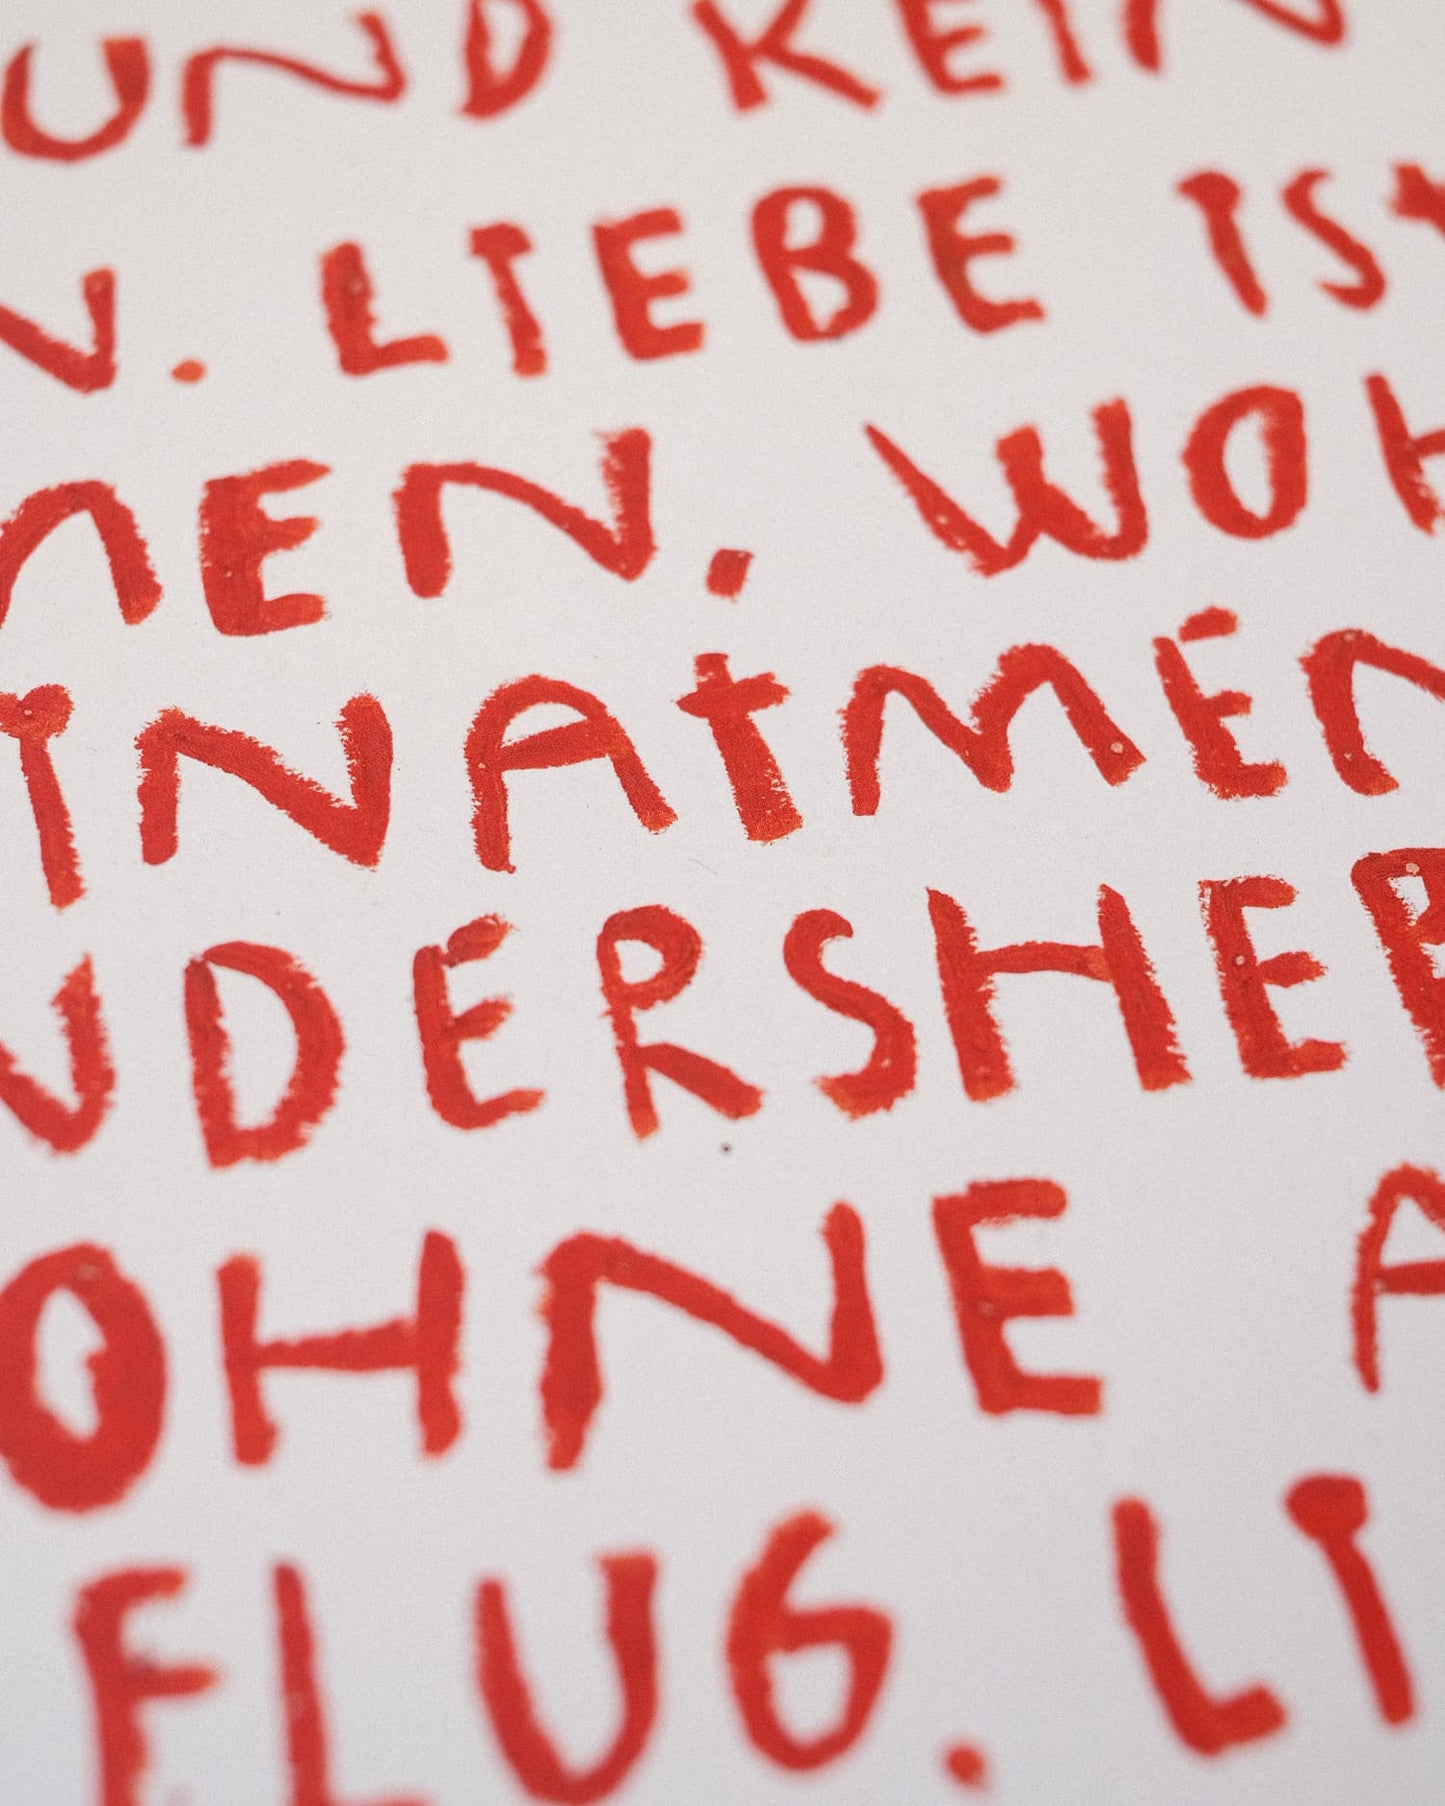 UND KEIN
N. LIEBE IST
MEN. WOH
INATMEN
NDERSHEB
OHNE A
FLUG. LI